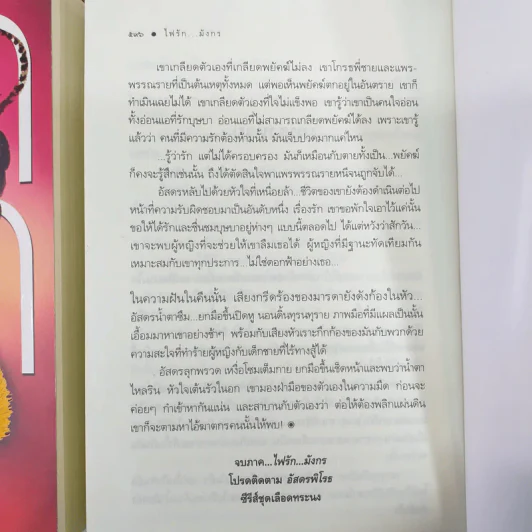 ๕๙๖ ● ไฟรัก...มังกร
เขาเกลียดตัวเองที่เกลียดพยัคฆ์ไม่ลง เขาโกรธพี่ชายและแพร-
พรรณรายที่เป็นต้นเหตุทั้งหมด แต่พอเห็นพยัคฆ์ตกอยู่ในอันตราย เขาก็
ทำเมินเฉยไม่ได้ เขาเกลียดตัวเองที่ใจไม่แข็งพอ เขารู้ว่าเขาเป็นคนใจอ่อน
ทั้งอ่อนแอที่รักบุษบา อ่อนแอที่ไม่สามารถเกลียดพยัคฆ์ได้ลง เพราะเขารู้
แล้วว่า คนที่มีความรักต้องห้ามนั้น มันเจ็บปวดมากแค่ไหน
...รู้ว่ารัก แต่ไม่ได้ครอบครอง มันก็เหมือนกับตายทั้งเป็น...พยัคฆ์
ก็คงจะรู้สึกเช่นนั้น ถึงได้ตัดสินใจพาแพรพรรณรายหนีจนถูกจับได้...
อัสดรหลับไปด้วยหัวใจที่เหนื่อยล้า...ชีวิตของเขายังต้องดำเนินต่อไป
หน้าที่ความรับผิดชอบมาเป็นอันดับหนึ่ง เรื่องรัก เขาขอพักใจเอาไว้แค่นั้น
ขอให้ได้รักและชื่นชมบุษบาอยู่ห่างๆ แบบนี้ตลอดไป ได้แต่หวังว่าสักวัน...
เขาจะพบผู้หญิงที่จะช่วยให้เขาลืมเธอได้ ผู้หญิงที่มีฐานะทัดเทียมกัน
เหมาะสมกับเขาทุกประการ...ไม่ใช่ดอกฟ้าอย่างเธอ...
ในความฝันในคืนนั้น เสียงกรีดร้องของมารดายังดังก้องในหัว...
อัสดรน้ำตาซึม...ยกมือขึ้นปิดหู นอนดิ้นทุรนทุราย ภาพมือที่มีแผลเป็นนั้น
เอื้อมมาหาเขาอย่างช้าๆ พร้อมกับเสียงหัวเราะกึกก้องของมันกับพวกด้วย
ความสะใจที่ทำร้ายผู้หญิงกับเด็กชายที่ไร้ทางสู้ได้
อัสดรลุกพรวด เหงื่อโซมเต็มกาย ยกมือขึ้นเช็ดหน้าและพบว่าน้ำตา
ไหลริน หัวใจเต้นรัวในอก เขามองฝ่ามือของตัวเองในความมืด ก่อนจะ
ค่อยๆ กำเข้าหากันแน่น และสาบานกับตัวเองว่า ต่อให้ต้องพลิกแผ่นดิน
เขาก็จะตามหาไอ้ฆาตกรคนนั้นให้พบ!
จบภาค...ไฟรัก...มังกร
โปรดติดตาม อัสดรพิโรธ
ซีรีส์ชุดเลือดทระนง